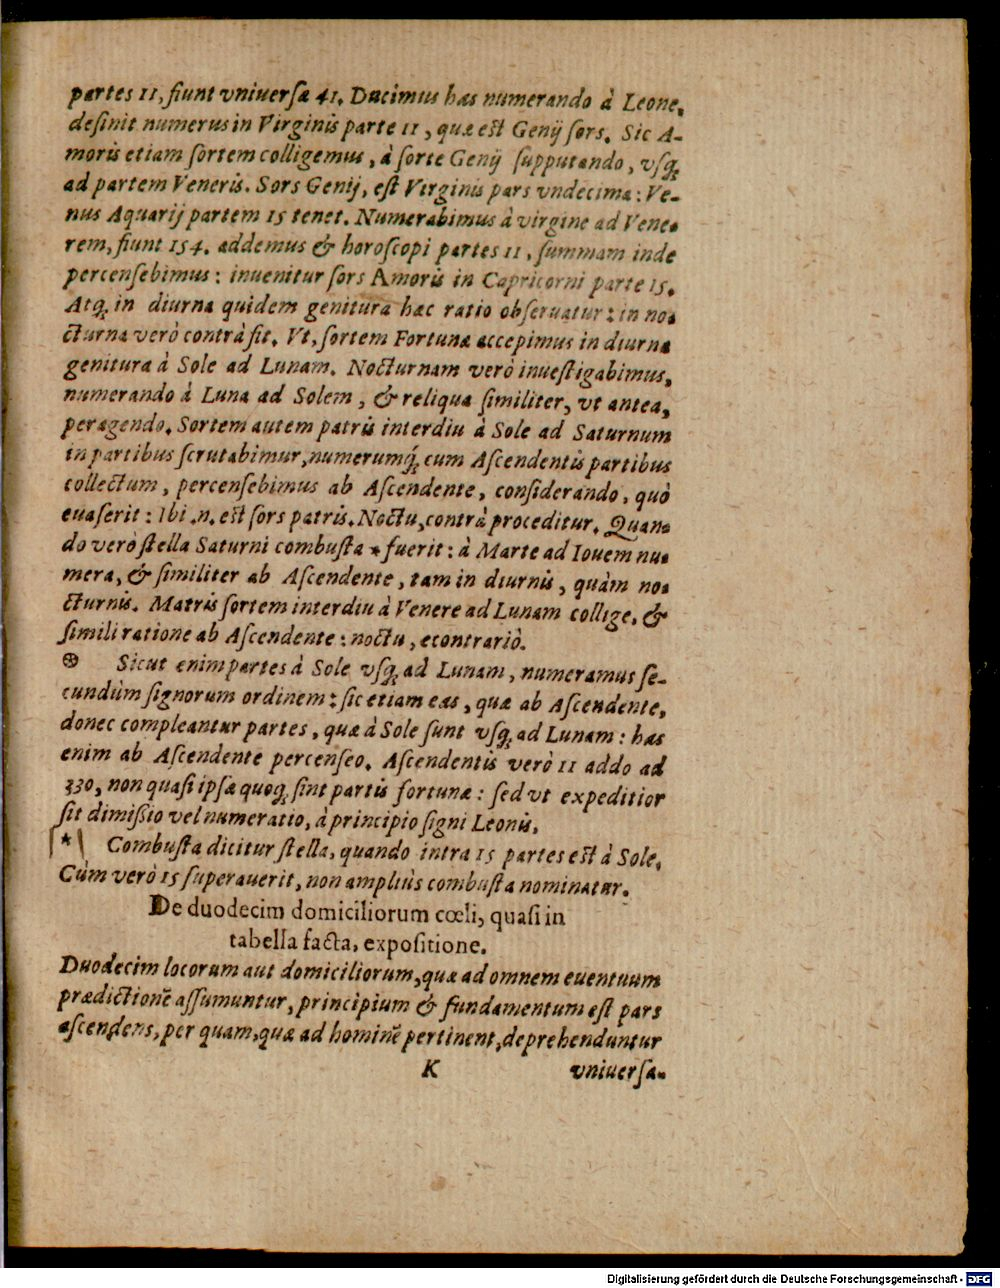 partes 11, fiunt vniuersæ 41. Ducimus has numerando à Leone,
desinit numerus in Virginis parte 11, quæ est Genij sors. Sic A-
moris etiam sortem colligemus, à sorte Genij supputando, vsq;
ad partem Veneris. Sors Genij, est Virginis pars vndecima: Ve-
nus Aquarij partem 15 tenet. Numerabimus à virgine ad Vene-
rem, fiunt 154. addemus & horoscopi partes 11, summam inde
percensebimus: inuenitur sors Amoris in Capricorni parte 15.
Atq; in diurna quidem genitura hæc ratio obseruatur: in no-
cturna verò contrà fit. Vt, sortem Fortunæ accepimus in diurna
genitura à Sole ad Lunam. Nocturnam verò inuestigabimus,
numerando à Luna ad Solem, & reliqua similiter, vt antea,
peragendo. Sortem autem patris interdiu à Sole ad Saturnum
in partibus scrutabimur, numerumq́; cum Ascendentis partibus
collectum, percensebimus ab Ascendente, considerando, quò
euaserit: Ibi .n. est sors patris. Noctu, contrà proceditur. Quan-
do verò stella Saturni combusta * fuerit: à Marte ad Iouem nu-
mera, & similiter ab Ascendente, tam in diurnis, quàm no-
cturnis. Matris sortem interdiu à Venere ad Lunam collige, &
simili ratione ab Ascendente: noctu, econtrariò.
⊛ Sicut enim partes à Sole vsq; ad Lunam, numeramus se-
cundùm signorum ordinem: sic etiam eas, quæ ab Ascendente,
donec compleantur partes, quæ à Sole sunt vsq; ad Lunam: has
enim ab Ascendente percenseo. Ascendentis verò 11 addo ad
330, non quasi ipsæ quoq; sint partis fortunæ: sed vt expeditior
sit dimißio vel numeratio, à principio signi Leonis.
[*] Combusta dicitur stella, quando intra 15 partes est à Sole.
Cùm verò 15 superauerit, non ampliùs combusta nominatur.
De duodecim domiciliorum cœli, quasi in
tabella facta, expositione.
Duodecim locorum aut domiciliorum, quæ ad omnem euentuum
prædictionē assumuntur, principium & fundamentum est pars
ascendens, per quam, quæ ad hominē pertinent, deprehenduntur
K vniuersa.
Digitalisierung gefördert durch die Deutsche Forschungsgemeinschaft - DFG